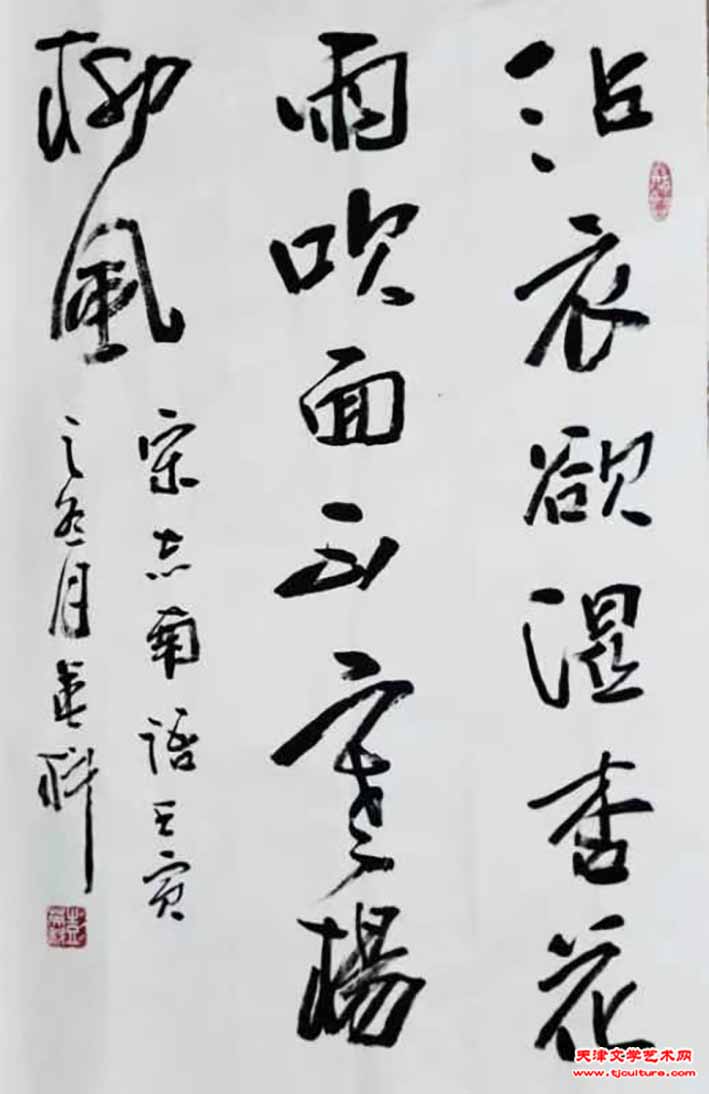 沾衣欲湿杏花
雨吹面不寒杨
柳风
宋志南语壬寅
之冬月英科
天津文学艺术网
www.tjculture.com